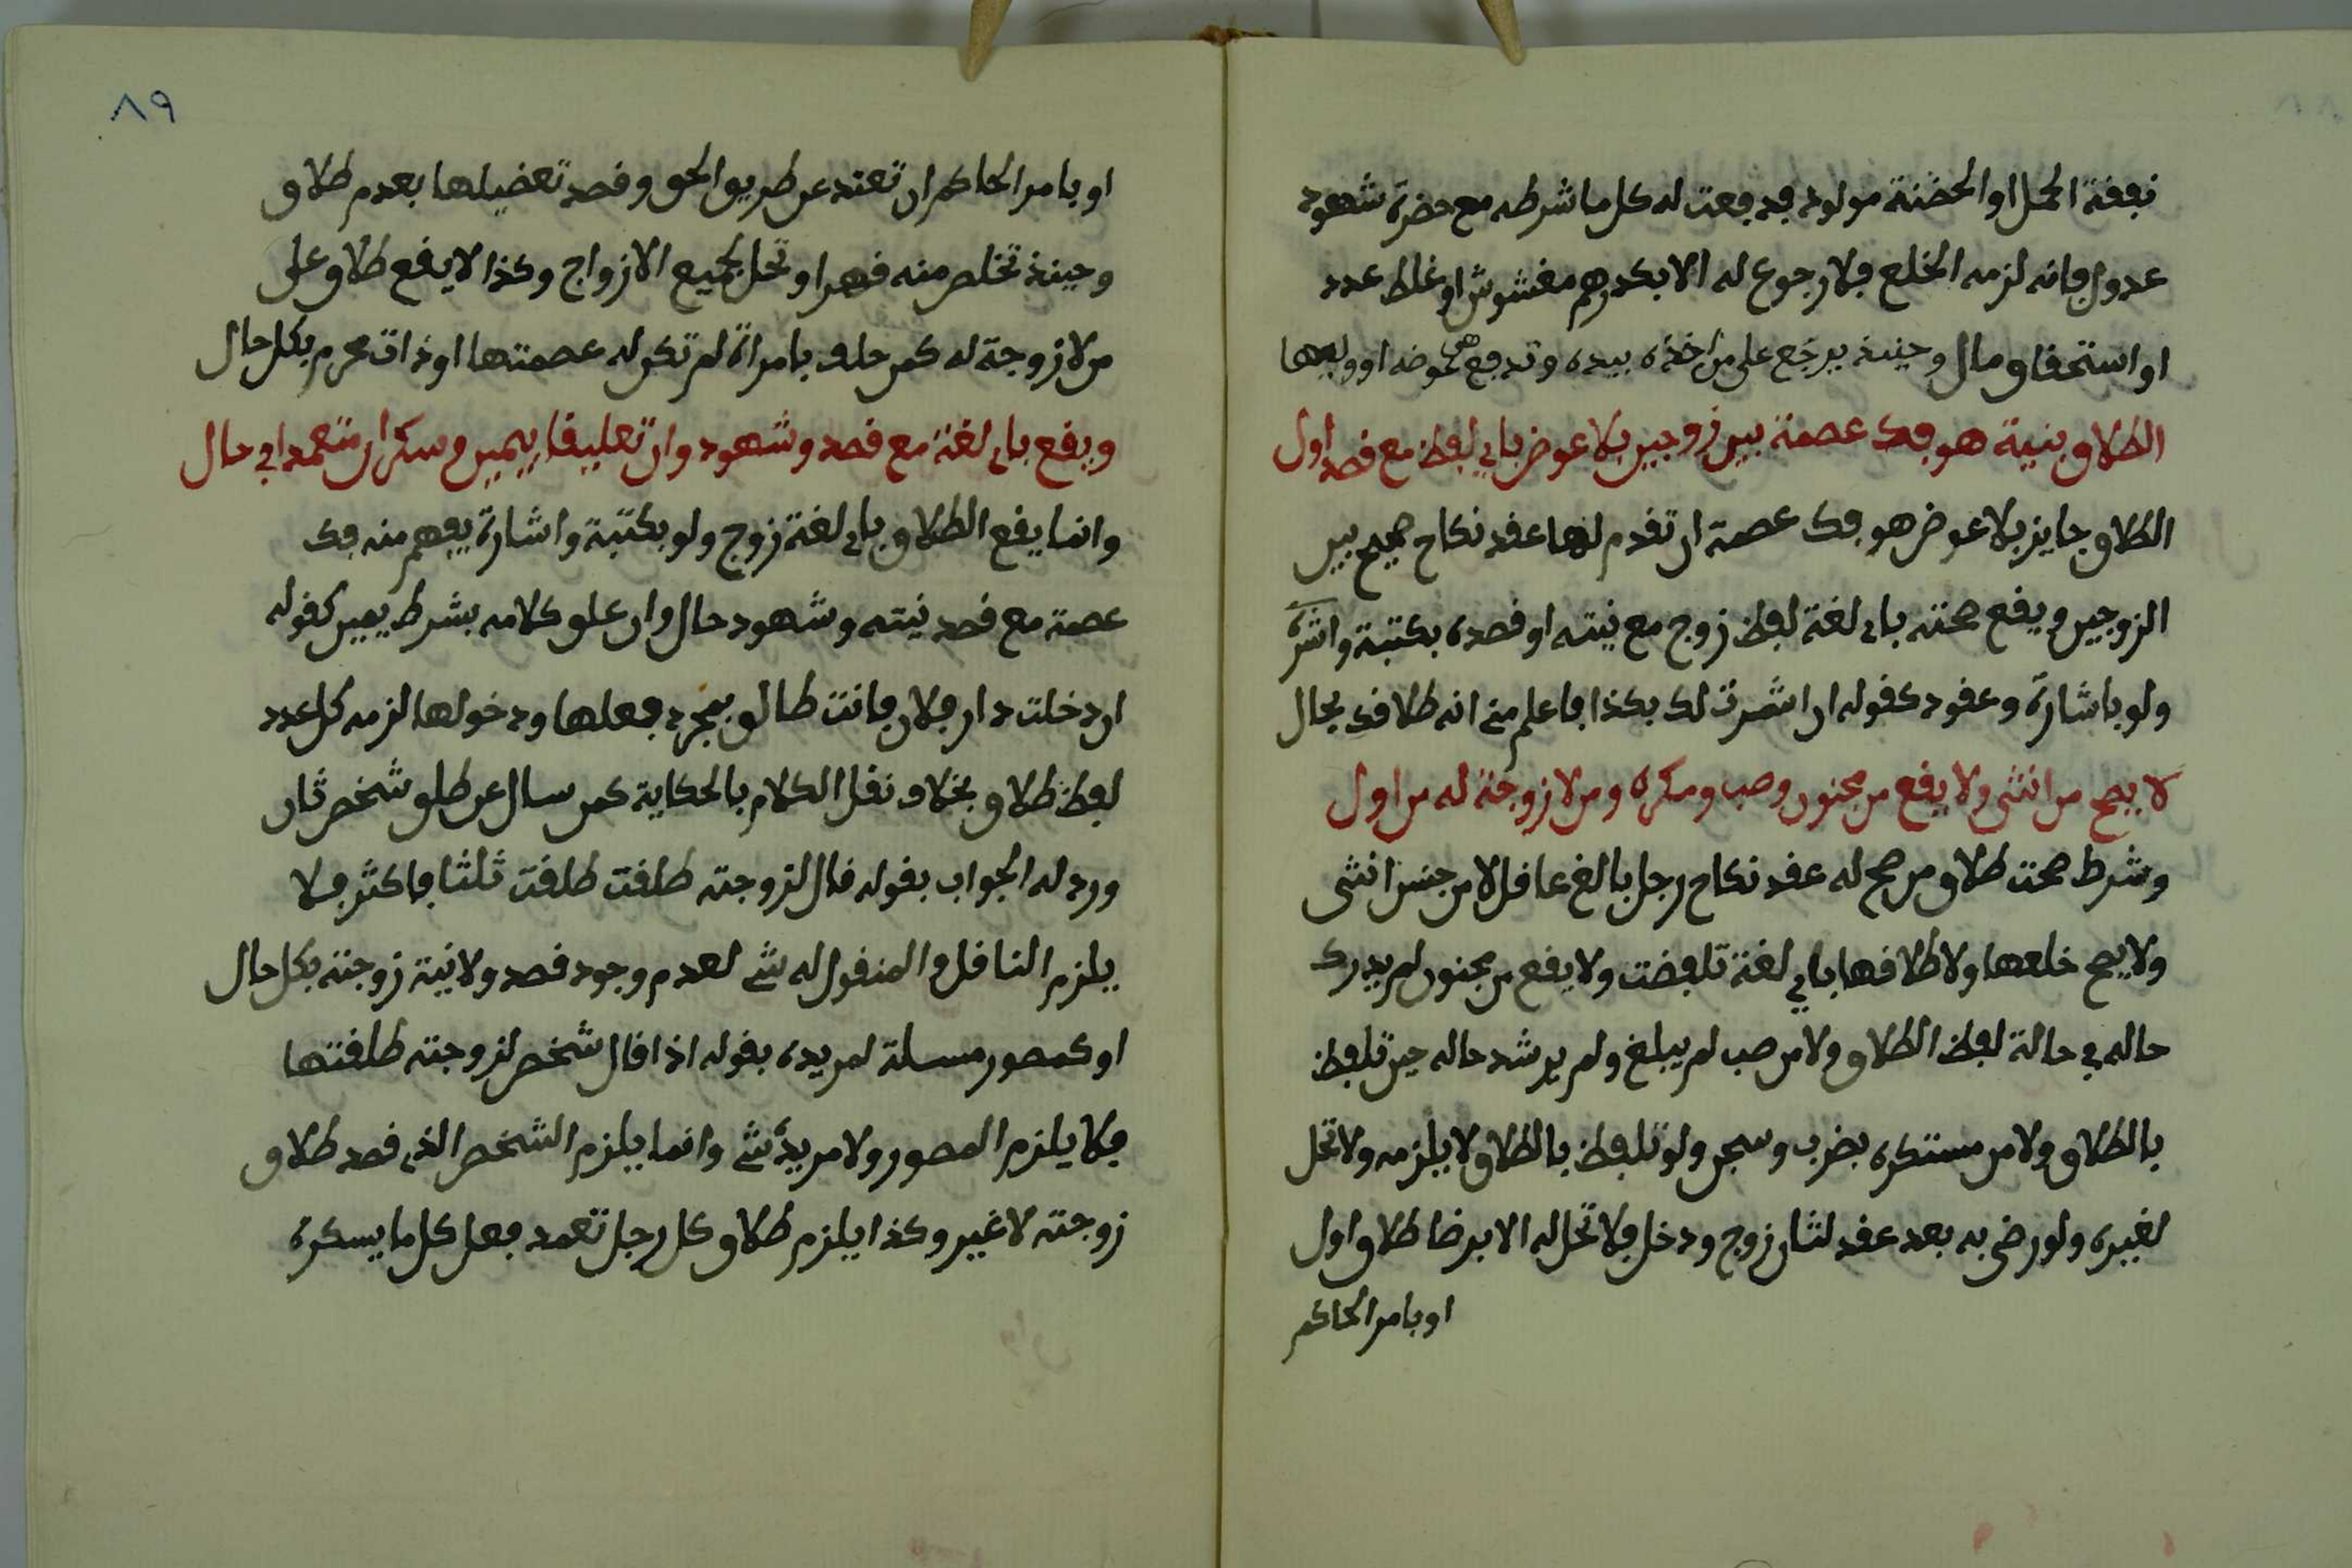 نفقة الحمل او الحضنة مولود فدفعت له كل ما شرطه مع حضرة شهود
عدول فانه لزمه الخلع فلا رجوع له الا بكدرهم مغشوش او غلط عدد
او استحقاق مال وحينئذ يرجع على من اخذه بيده وتدفع هي عوضه او وليها
الطلاق بنية هو فك عصمة بين زوجين بلا عوض باي لفظ مع قصد اول
الطلاق جايز بلا عوض هو فك عصمة ان تقدم لها عقد نكاح صحيح بين
الزوجين ويقع صحته باي لغة لفظ زوج مع نيته او قصده بكتبة واشرة
ولو باشارة وعقود كقوله ان اشرت لك بكذا فاعلم مني انه طلاقك بحال
لا يصح من انثى ولا يقع من مجنون وصب ومكره ومن لا زوجة له من اول
وشرط صحت طلاق من صح له عقد نكاح رجل بالغ عاقل لا من جنس انثى
ولا يصح خلعها ولا طلاقها باي لغة تلفضت ولا يقع من مجنون لم يدرك
حاله في حالة لفظ الطلاق ولا من صب لم يبلغ ولم يرشد حاله حين تلفظ
بالطلاق ولا من مستكره بضرب وسجن ولو تلفظ بالطلاق لا يلزمه ولا تحل
لغيره ولو رضى به بعد عقد لثان زوج ودخل فلا تحل له الا برضا طلاق اول
او بامر الحاكم
٨٩
او بامر الحاكم ان تعتد عن طريق الحق وقصد تعضيلها بعدم طلاق
وحينئذ تخلص منه قهرا وتحل لجميع الازواج وكذا لا يقع طلاق على
من لا زوجة له كمن حلف بامراة لم تكن له عصمتها او ذات محرم بكل حال
ويقع باي لغة مع قصد وشهود وان تعليقا بيمين وسكران متعمدا في حال
وانما يقع الطلاق باي لغة زوج ولو بكتبة واشارة يفهم منه فك
عصمة مع قصد نيته وشهود حال وان علق كلامه بشرط يمين كقوله
ان دخلت دار فلان فانت طالق بمجرد فعلها ودخولها لزمه كل عدد
لفظ طلاق بخلاف نقل الكلام بالحكاية كمن سال عن طلق شخص ثان
ورد له الجواب بقوله قال لزوجته طلقت طلقت ثلثا فاكثر فلا
يلزم الناقل والمنقول له شي لعدم وجود قصد ولا نية زوجته بكل حال
او كمصور مسلة لمريده بقوله اذا قال شخص لزوجته طلقتها
فلا يلزم المصور ولا مريده شي وانما يلزم الشخص الذي قصد طلاق
زوجته لا غير وكذا يلزم طلاق كل رجل تعمد فعل كل ما يسكره